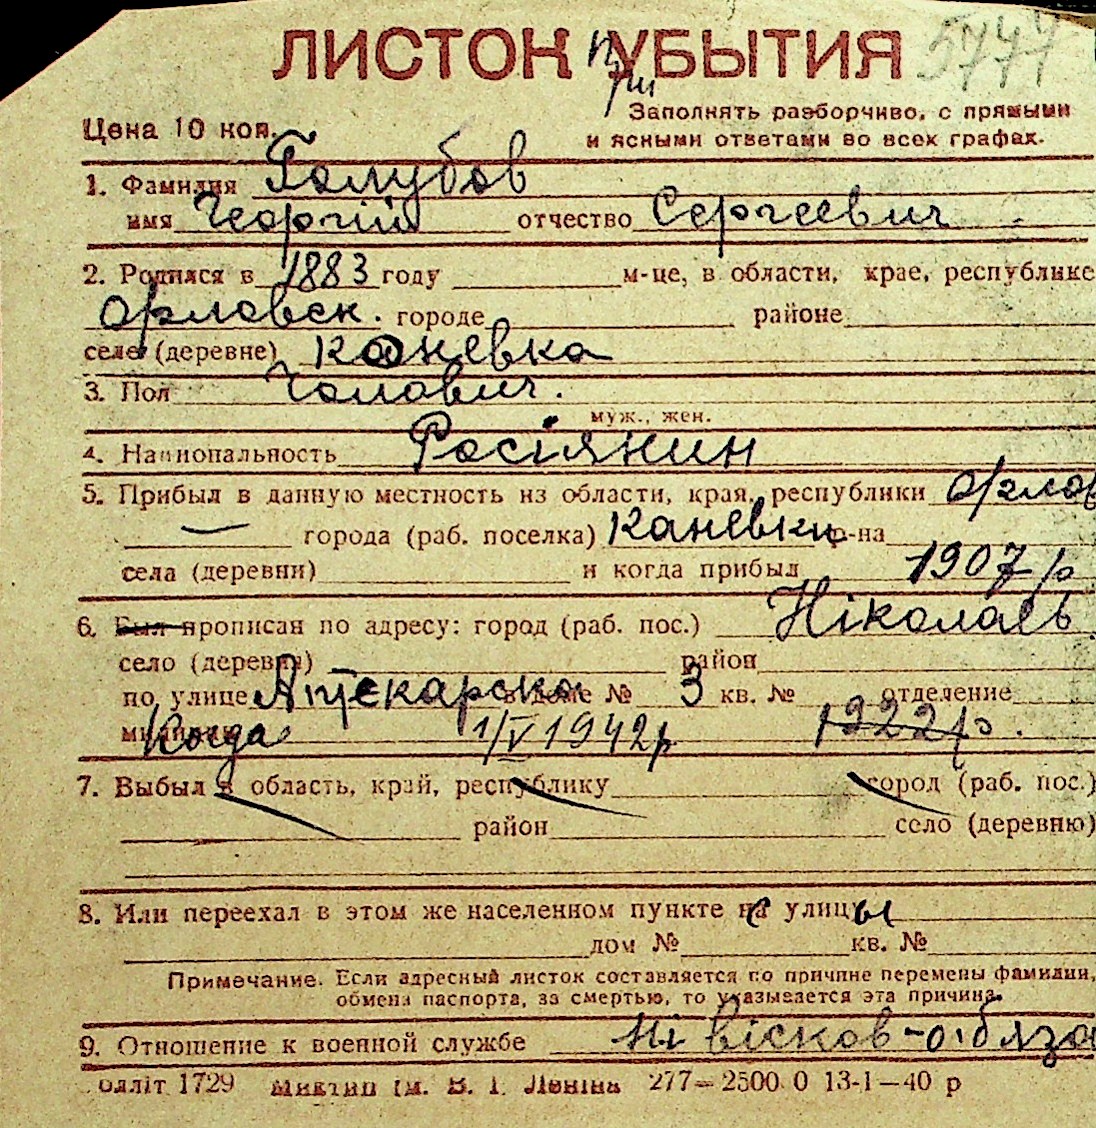 ЛИСТОК УБЫТИЯ 5747
при
Цена 10 коп.
Заполнять разборчиво, с прямыми
и ясными ответами во всех графах.
1. Фамилия Голубов
имя Георгій отчество Сергеевич
2. Родился в 1883 году м-це, в области, крае, республике
Орловск. городе районе
селе (деревне) Каневка
3. Пол Чолович.
муж., жен.
4. Национальность Росіянин
5. Прибыл в данную местность из области, края, республики Орлов
— города (раб. поселка) Каневки р-на
села (деревни) и когда прибыл 1907 р
6. Был прописан по адресу: город (раб. пос.) Ніколаєв
село (деревня) район
по улице Аптекарска в доме № 3 кв. № отделение
милиции Когда 1/V 1942 р 1922 р.
7. Выбыл в область, край, республику город (раб. пос.)
район село (деревню)
8. Или переехал в этом же населенном пункте с улицы
дом № кв. №
Примечание. Если адресный листок составляется по причине перемены фамилии,
обмена паспорта, за смертью, то указывается эта причина.
9. Отношение к военной службе Ні вісков-обяза
олліт 1729 ім. В. І. Леніна 277—2500.0 13-1—40 р